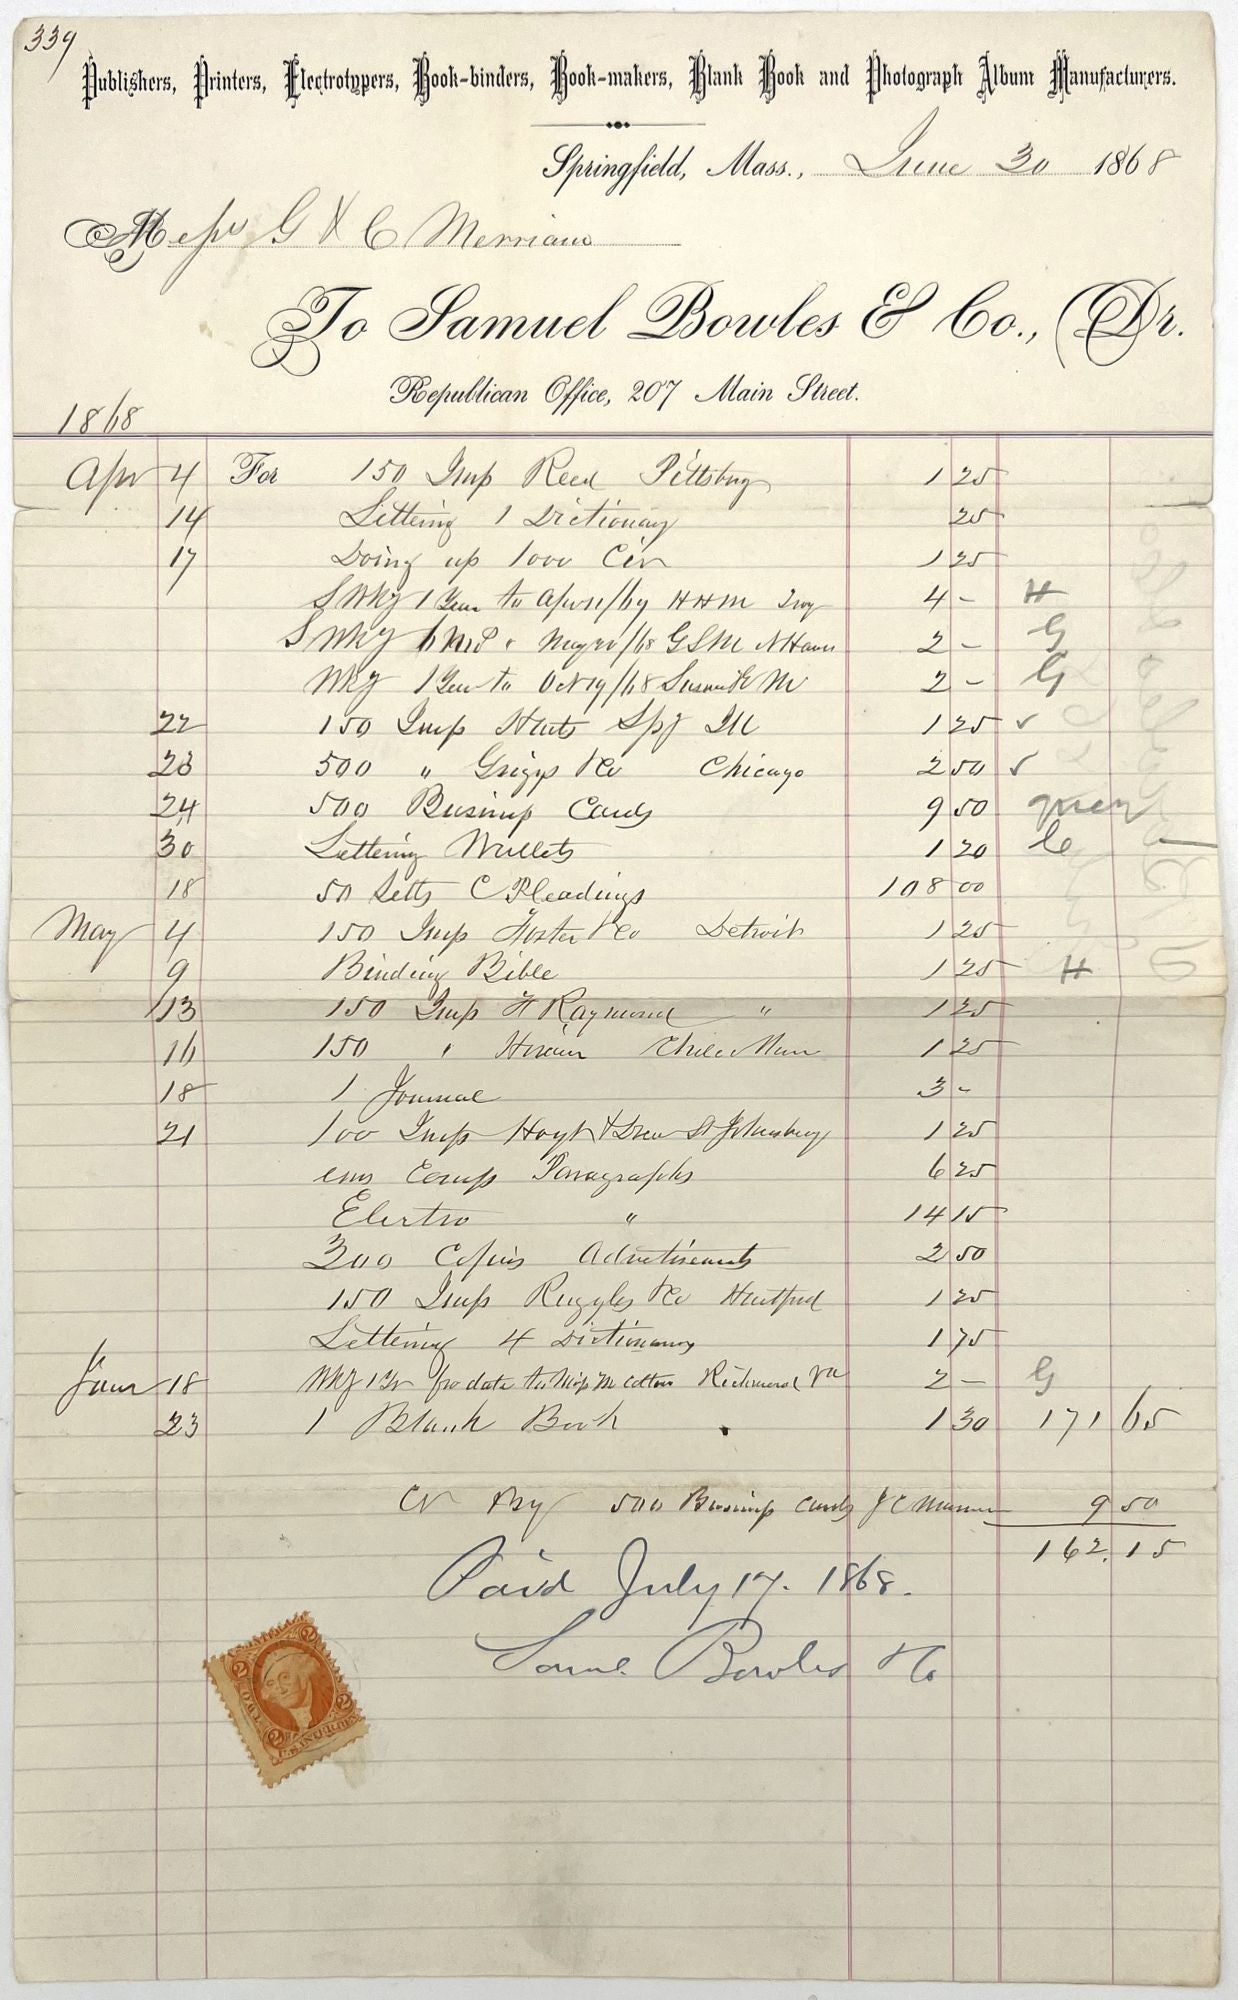 339
Publishers, Printers, Electrotypers, Book-binders, Book-makers, Blank Book and Photograph Album Manufacturers.
Springfield, Mass., June 30 1868
Mess G & C Merriam
To Samuel Bowles & Co., Dr.
Republican Office, 207 Main Street.
1868
Apr 4 For 150 Imp Reed Pittsburg 1 25
14 Lettering 1 Dictionary 25
17 Doing up 1000 Cir 1 25
S Wky 1 Year to Apr 11/69 H H M Troy 4 - H
S Wky 6 Mos " May 20/68 G S M N Haven 2 - G
Wky 1 Year to Oct 19/68 Susan K M 2 - G
22 150 Imp Hunts Spg Ill 1 25 ✓
23 500 " Griggs & Co Chicago 2 50 ✓
24 500 Business Cards 9 50
30 Lettering Wallets 1 20 C
18 50 Setts C Pleadings 108 00
May 4 150 Imp Foster & Co Detroit 1 25
9 Binding Bible 1 25 H
13 150 Imp F Raymond " 1 25
16 150 " 1 25
18 1 Journal 3 -
21 100 Imps Hoyt & Drew St Johnsbury 1 25
ems Comp Paragraphs 6 25
Electro " 14 15
300 Copies Advertisements 2 50
150 Imps Ruggles & Co Hartford 1 25
Lettering 4 Dictionary 1 75
June 18 Wky 1 Yr fro date to Miss M Cotton Richmond Va 2 - G
23 1 Blank Book 1 30 171 65
Cr By 500 Business Cards J C 9 50
162.15
Paid July 17. 1868.
Saml Bowles & Co
U.S. INTER. REV.
2
2
2
2